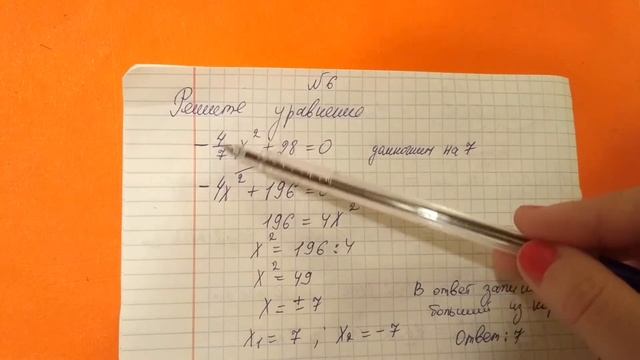 №6
Решите уравнение
-4/7 x² + 28 = 0 домножим на 7
-4x² + 196 =
196 = 4x²
x² = 196 : 4
x² = 49
x = ± 7
В ответ
больший из
x₁ = 7 ; x₂ = -7 Ответ: 7